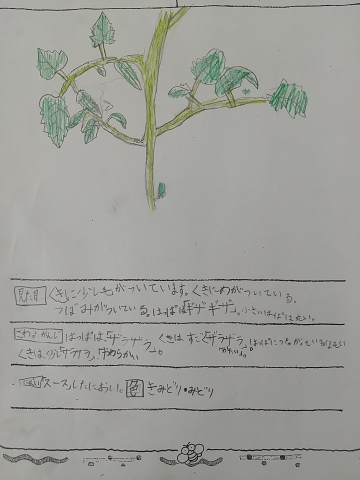 見た目 くきに少し毛がついています。くきにめがついている、
つぼみがついている。はっぱは「ギザギザ」。小さいはっぱは丸い。
さわったかんじ はっぱは、「ザラザラ」。くきは、すごく「ザラザラ」。はっぱにつながっている
くきは、少し「サラサラ」、やわらかい
におい スースしたにおい。 色 きみどり・みどり